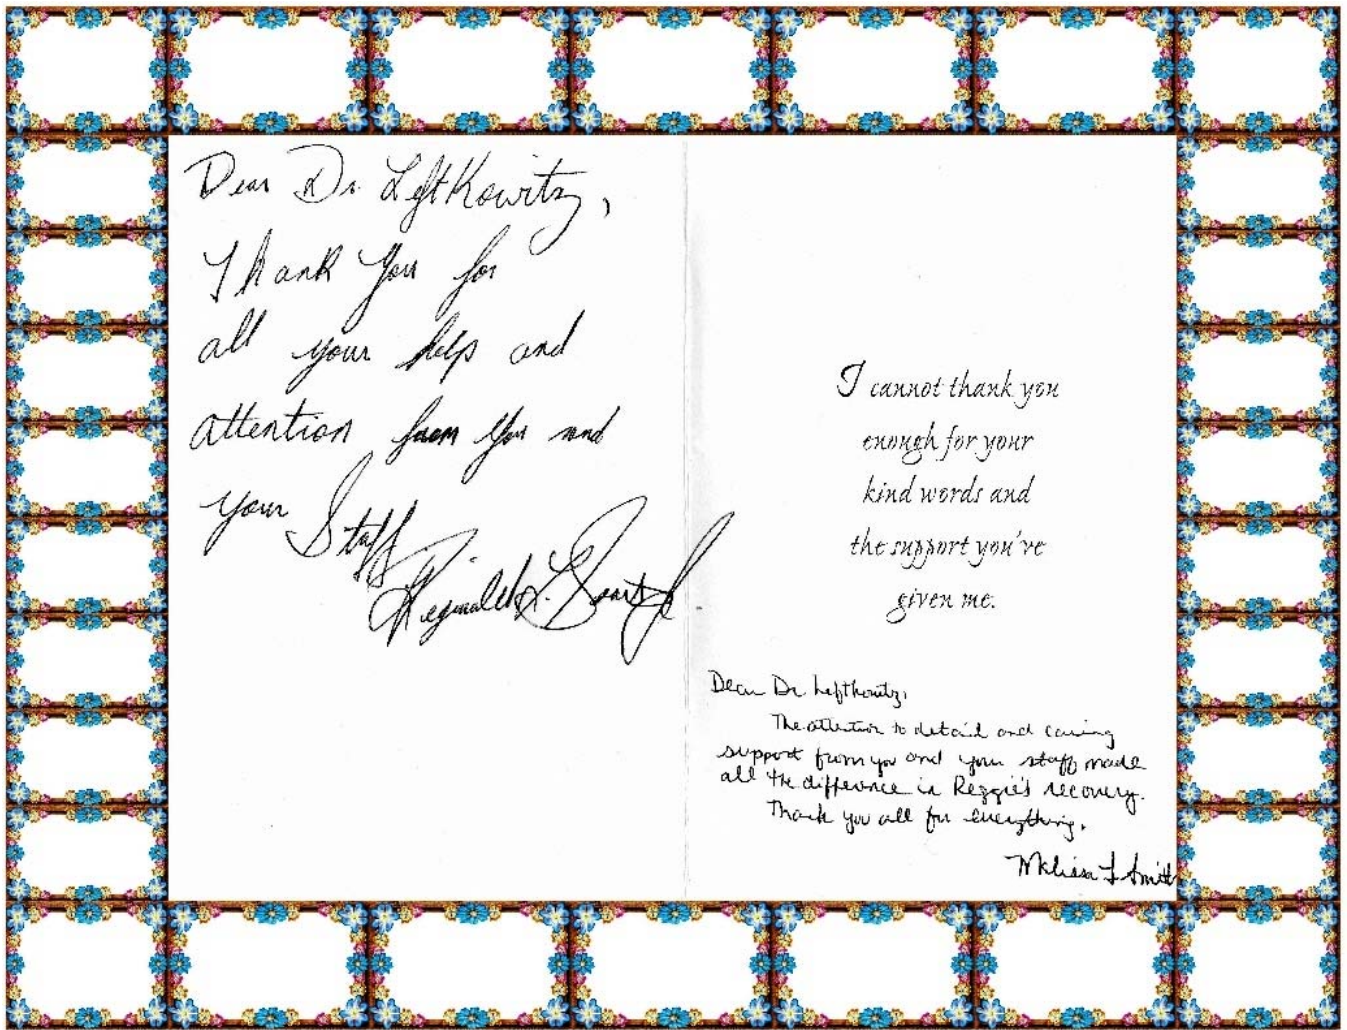 Dear Dr. LeftKowitz,
Thank You for
all your help and
attention from You and
your Staff
Reginald L.
I cannot thank you
enough for your
kind words and
the support you've
given me.
Dear Dr. Leftkowitz,
The attention to detail and caring
support from you and your staff made
all the difference in Reggie's recovery.
Thank you all for everything.
Melissa L Smith